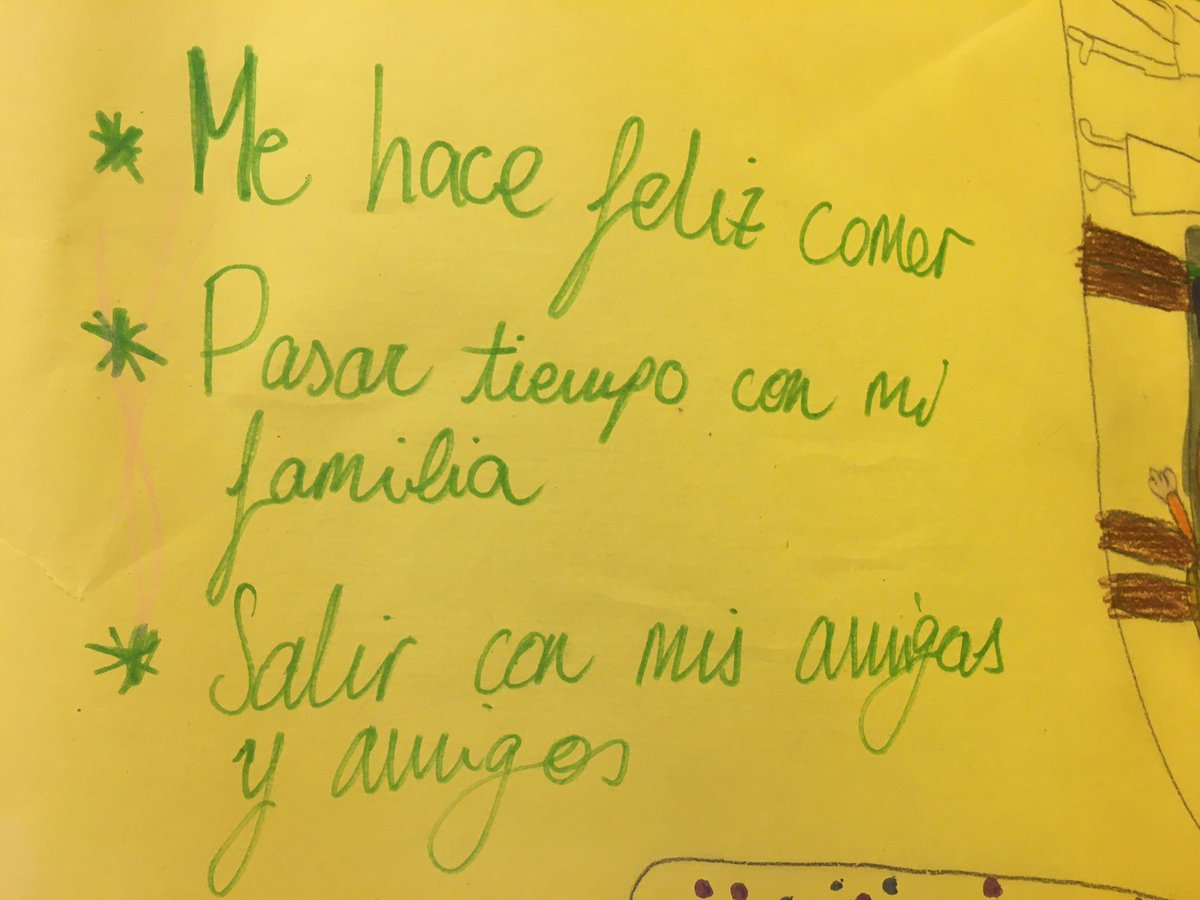 * Me hace feliz comer
* Pasar tiempo con mi
familia
* Salir con mis amigas
y amigos